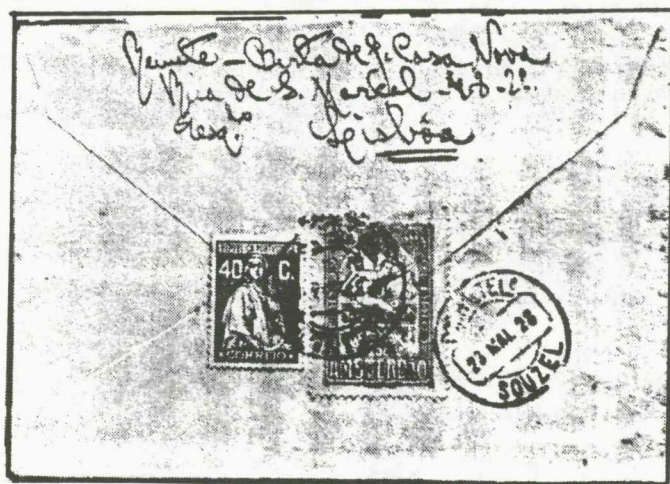 Remete - Berta de J. Casa Nova
Rua de S. Marçal - 48-2º.
Esqº Lisbôa
40 C.
CORREIO
AMSTERDÃO
23 MAI. 28
SOUZEL